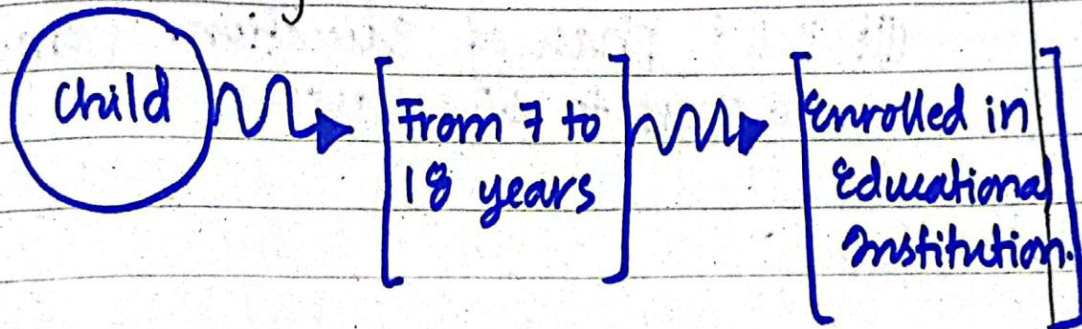 Child
From 7 to
18 years
Enrolled in
Educational
Institution.